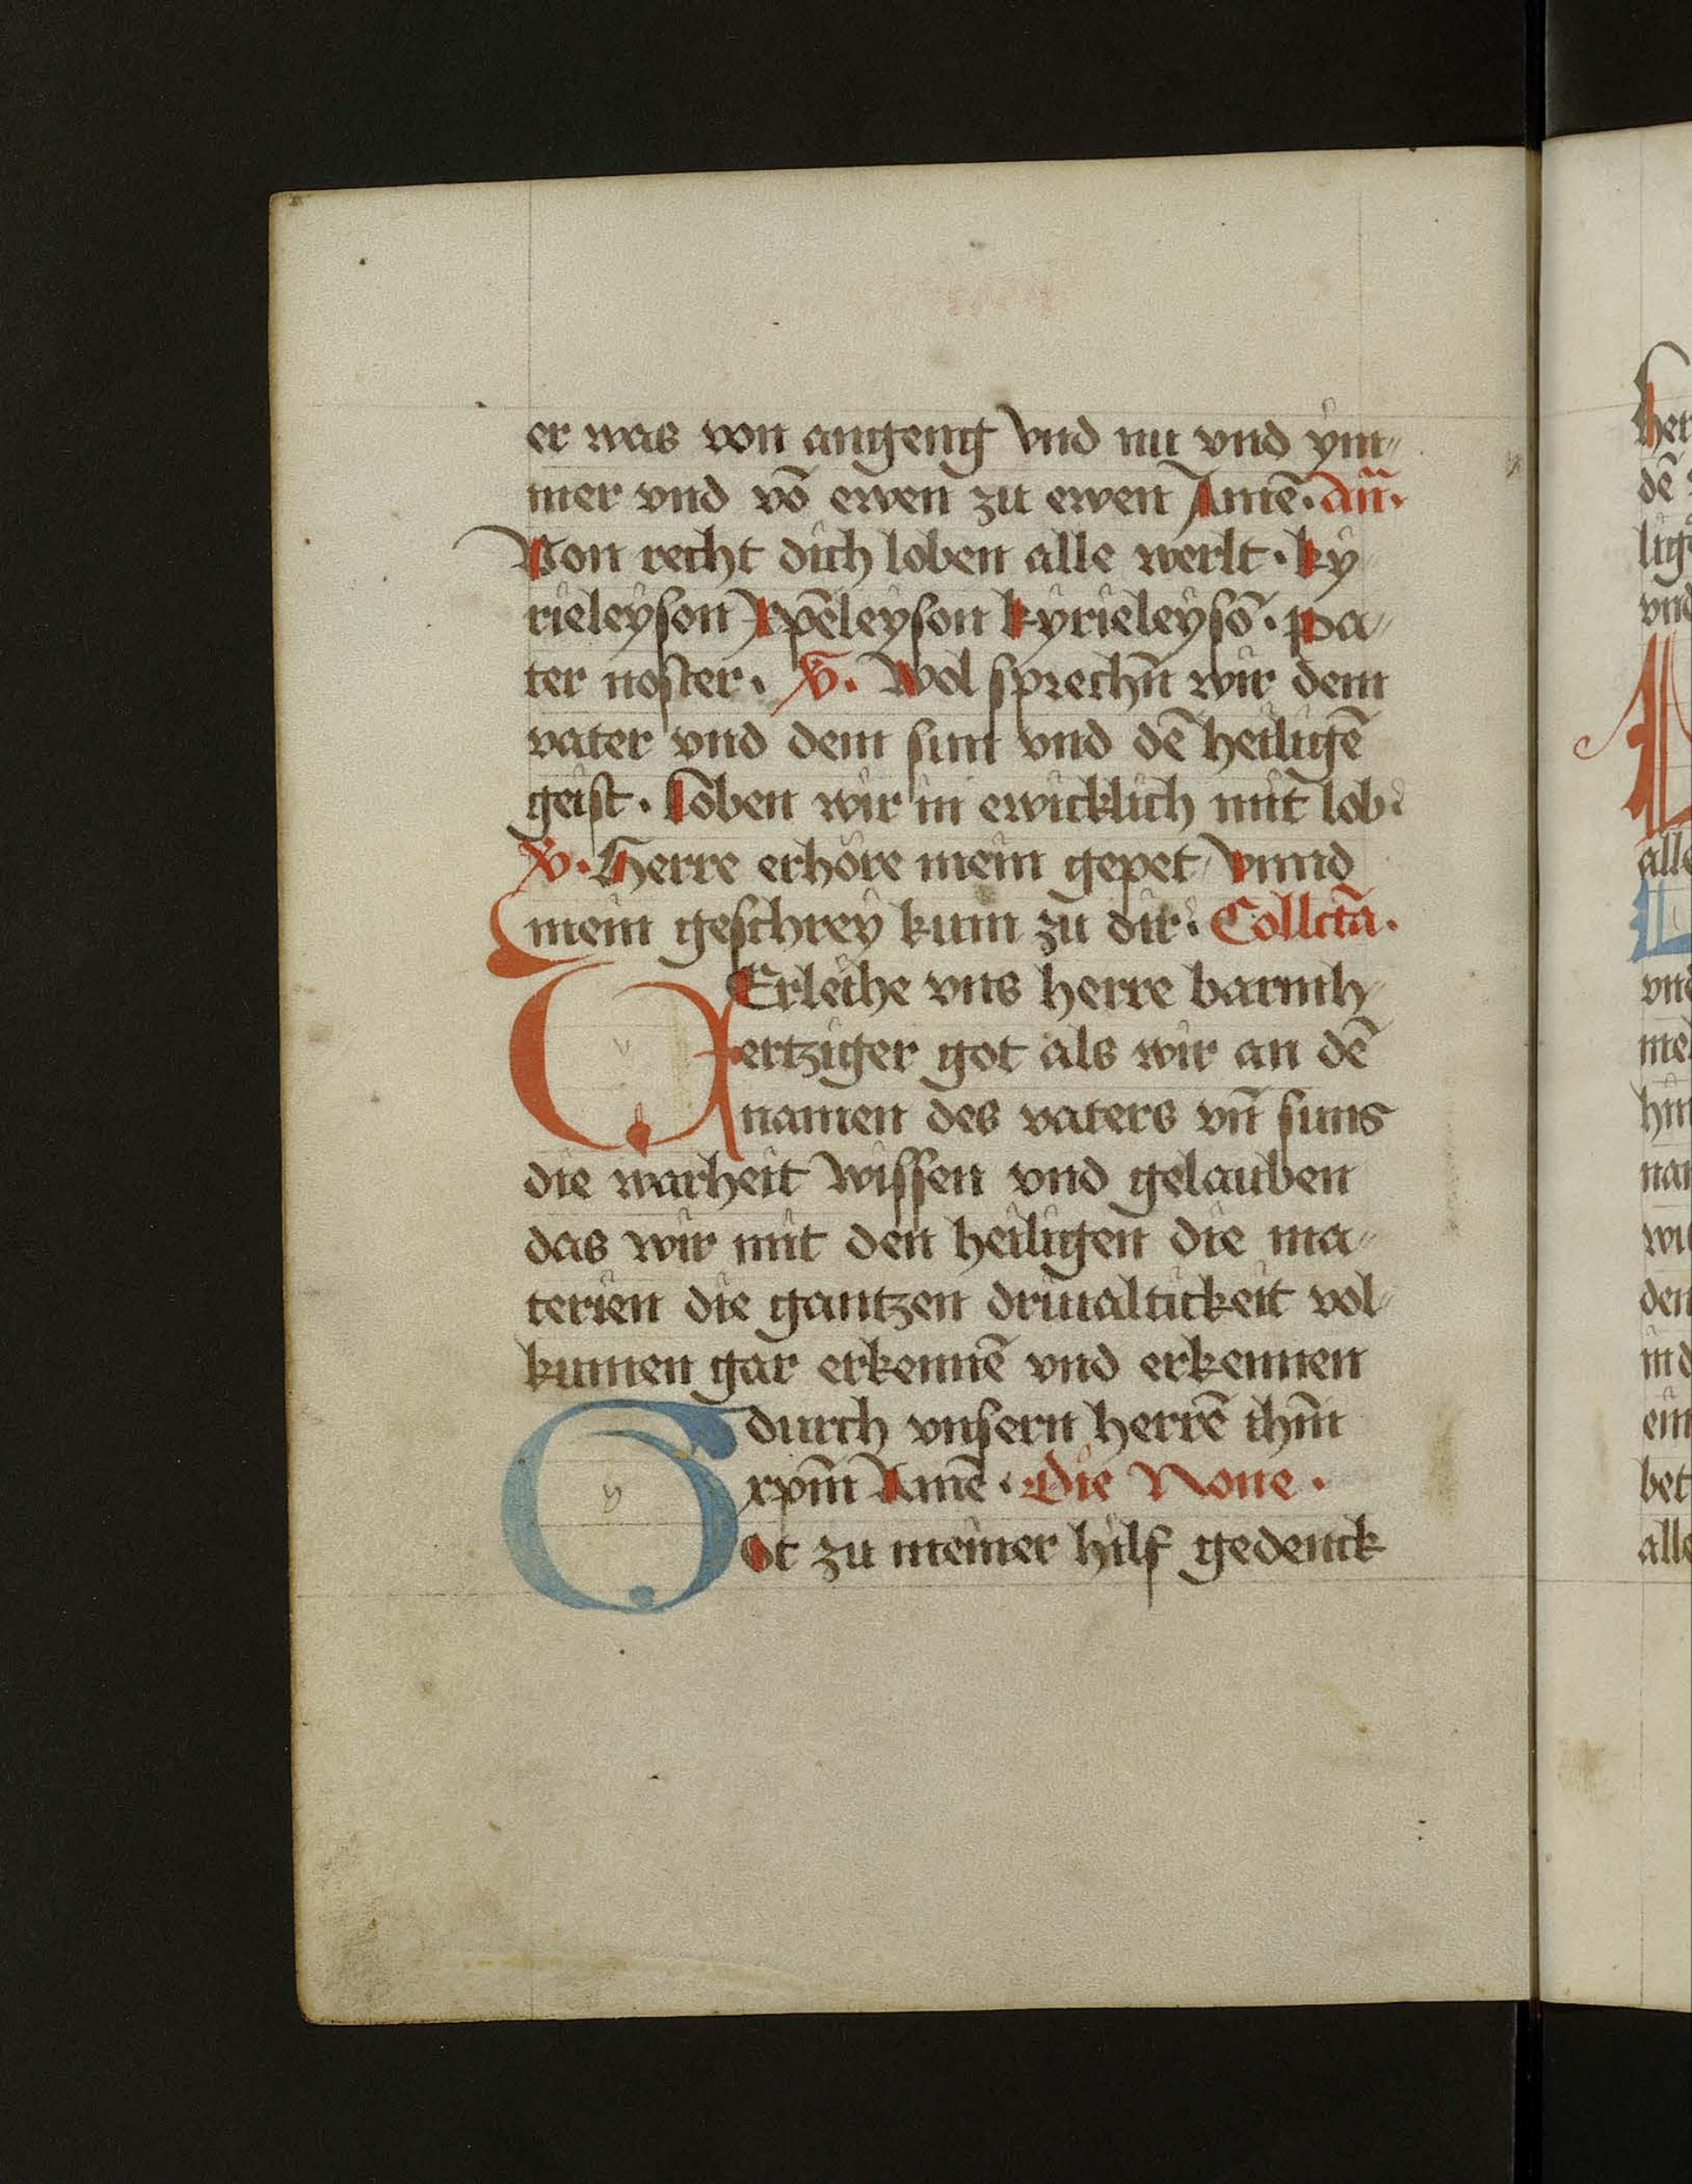 er was von angeng Vnd nu vnd ym„
mer vnd vō ewen zu ewen Amē. an̄.
Von recht dich loben alle werlt. ky„
rieleyson Xpēleyson kyrieleysō. pa„
ter noster. V̸. Wol sprechn̄ wir dem
vater vnd dem sun vnd dē heiligē
geist. loben wir in ewicklich mit lob.
V̸. Herre erhöre mein gepet Vnnd
mein geschrey kum zu dir. Collctā.
VErleihe vns herre barmh„
ertziger got als wir an dē
namen des vaters vn̄ suns
die warheit wissen vnd gelauben
das wir mit den heiligen die ma„
terien die gantzen driualtickeit vol„
kumen gar erkennē vnd erkennen
durch vnsern herrē ihm̄
xpm̄ Amē. Die None.
Got zu meiner hilf gedenck